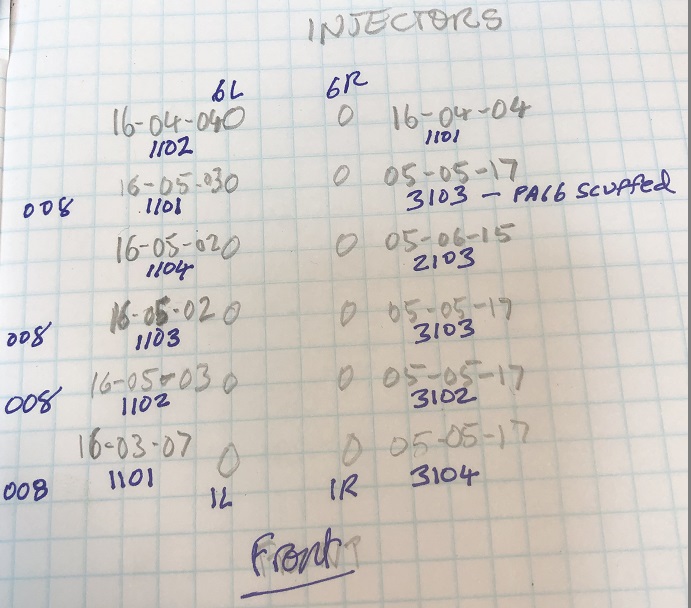 INJECTORS
6L 6R
16-04-04 0 0 16-04-04
1102 1101
16-05-03 0 0 05-05-17
008 1101 3103 - PA66 SCUFFED
16-05-02 0 0 05-06-15
1104 2103
16-05-02 0 0 05-05-17
008 1103 3103
16-05-03 0 0 05-05-17
008 1102 3102
16-03-07 0 0 05-05-17
008 1101 1L 1R 3104
Front